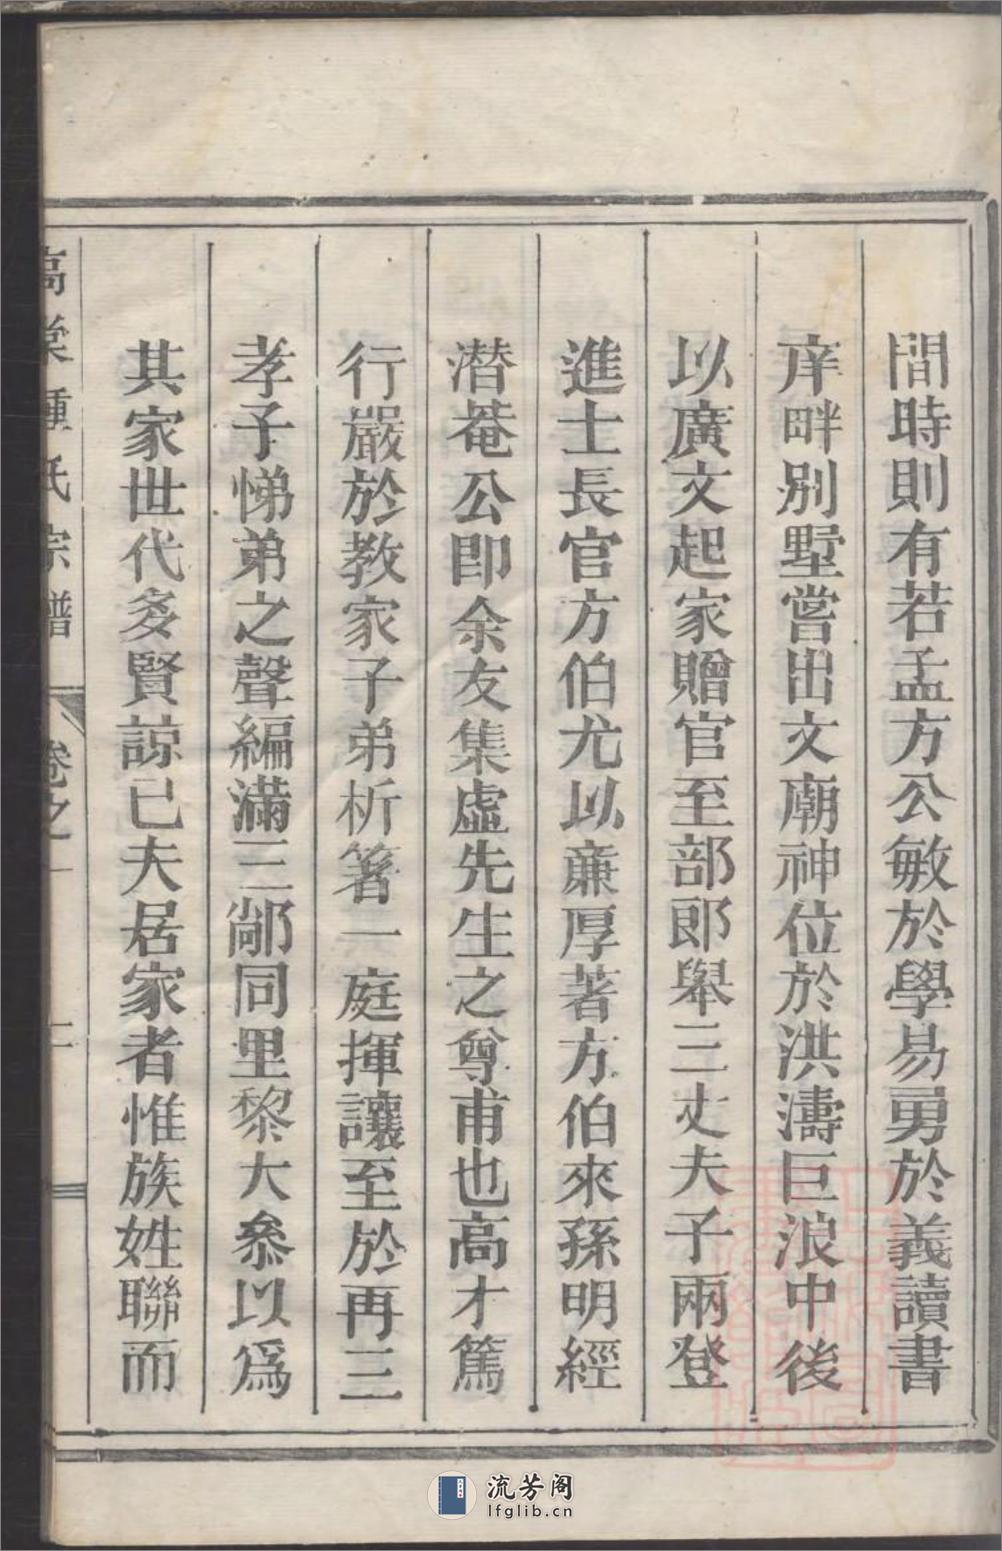 間時則有若孟方公敏於學易勇於義讀書
庠畔別墅嘗出文廟神位於洪濤巨浪中後
以廣文起家贈官至部郎舉三丈夫子兩登
進士長官方伯尤以廉厚著方伯來孫明經
潜菴公即余友集虛先生之尊甫也高才篤
行嚴於教家子弟析箸一庭揮讓至於再三
孝子悌弟之聲編滿三鄗同里黎大叅以爲
其家世代多賢諒已夫居家者惟族姓聯而
氏宗譜 卷之一 二
流芳阁
lfglib.cn